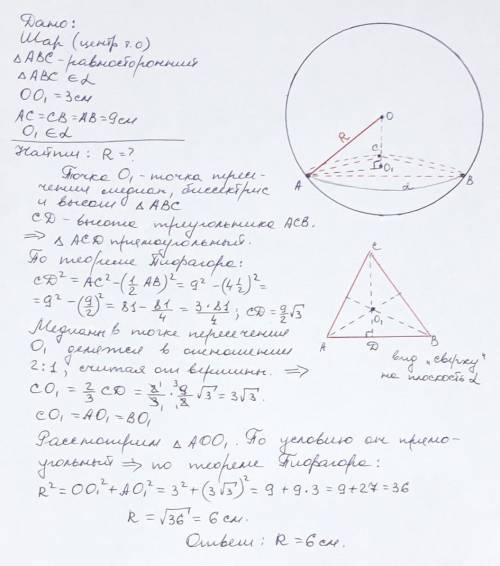 Дано:
Шар (центр т.О)
△ABC - равносторонний
△ABC ∈ α
OO₁ = 3см
AC = CB = AB = 9см
O₁ ∈ α
Найти: R = ?
Точка O₁ - точка пересе-
чения медиан, биссектрис
и высот △ABC
CD - высота треугольника ACB.
⟹ △ACD прямоугольный.
По теореме Пифагора:
CD² = AC² - (1/2 AB)² = 9² - (4 1/2)² =
= 9² - (9/2)² = 81 - 81/4 = 3·81/4 ; CD = 9/2 √3
Медианы в точке пересечения
O₁ делятся в отношении
2:1, считая от вершины. ⟹
CO₁ = 2/3 CD = 2/3 · 9/2 √3 = 3√3.
CO₁ = AO₁ = BO₁
Рассмотрим △AOO₁. По условию он прямо-
угольный ⟹ по теореме Пифагора:
R² = OO₁² + AO₁² = 3² + (3√3)² = 9 + 9·3 = 9 + 27 = 36
R = √36 = 6 см.
Ответ: R = 6 см.
O
R
C
O₁
A
α
B
C
O₁
A
D
B
вид "сверху"
на плоскость α